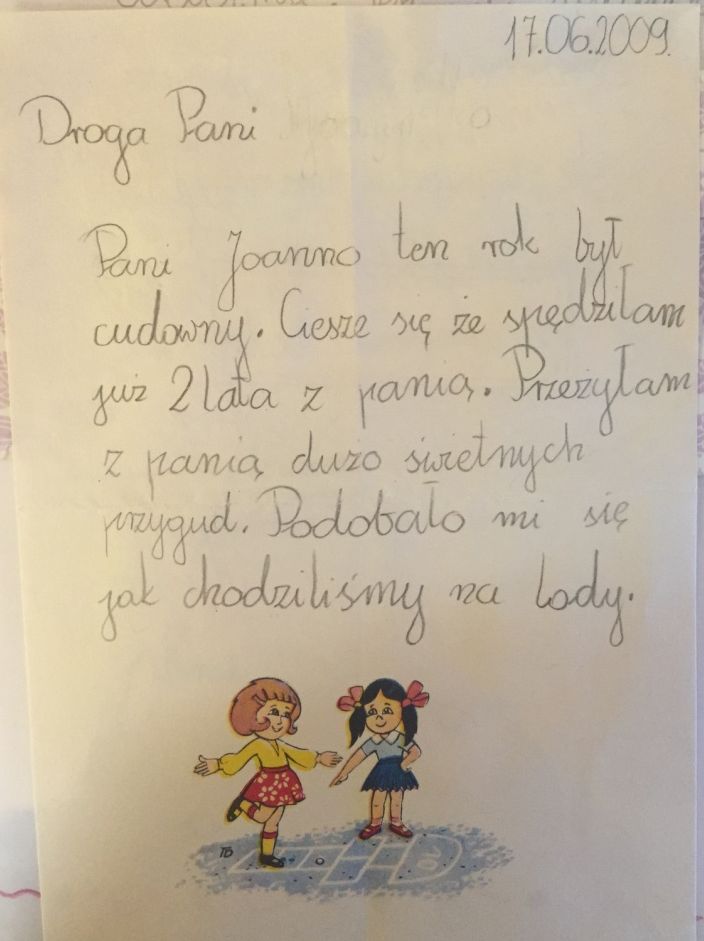 17.06.2009.
Droga Pani
Pani Joanno ten rok był
cudowny. Ciesze się że spędziłam
już 2 lata z panią. Przeżyłam
z panią dużo świetnych
przygud. Podobało mi się
jak chodziliśmy na lody.
TB